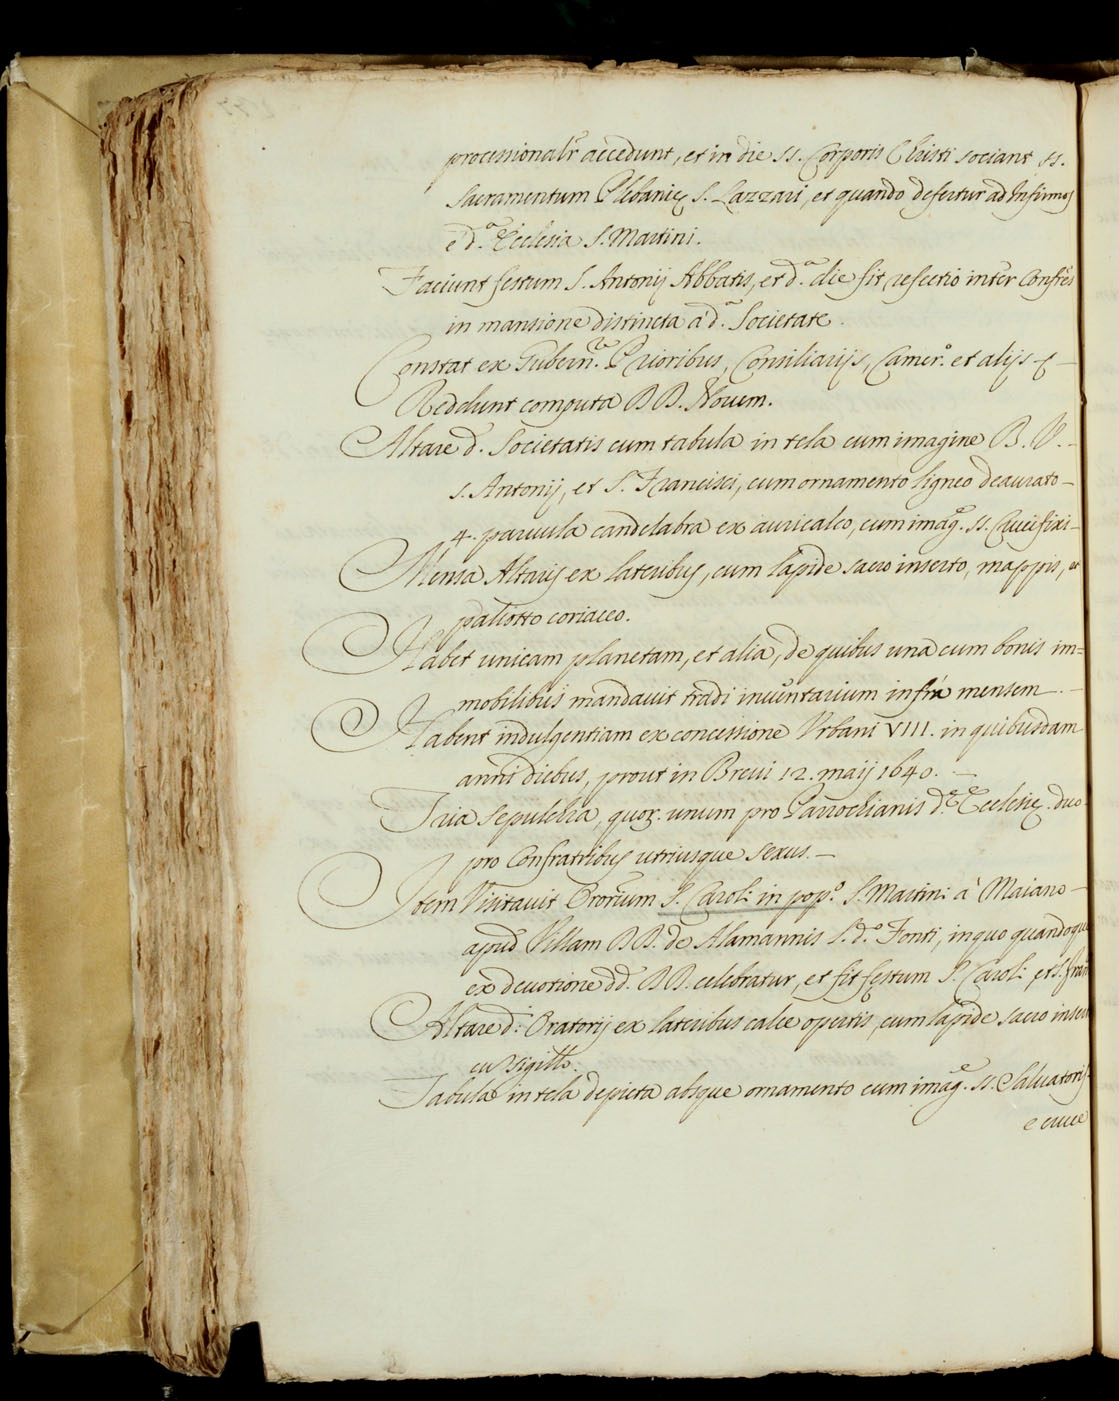 processionalr̃ accedunt, et in die SS. Corporis Christi sociant SS.
Sacramentum Plebanię S. Lazzari, et quando defertur ad Infirmos
è d.ª Ecclesia S. Martini.
Faciunt festum S. Antonij Abbatis, et d.ª die fit refectio inter Confr̃es
in mansione distincta à d.ª Societate.
Constat ex Gubern.re Prioribus, Consiliarijs, Camer.º et alijs &
Reddunt computa BB. Novem.
Altare d. Societatis cum tabula in tela cum imagine B. V. –
S. Antonij, et S. Francisci, cum ornamento ligneo deaurato –
4. parvula candelabra ex auricalco, cum imag.e SS. Crucifixi –
Mensa Altaris ex lateribus, cum lapide sacro inserto, mappis, et
paliotto coriaceo.
Habet unicam planetam, et alia, de quibus una cum bonis im=
mobilibus mandavit tradi inventarium infra mensem. –
Habent indulgentiam ex concessione Urbani VIII. in quibusdam
anni diebus, prout in Brevi 12. maij 1640. –
Tria sepulchra, quor. unum pro Parrochianis d.ę Ecclesię. duo
pro Confratribus utriusque sexus. –
Item Visitavit Or̃orium S. Caroli in pop.º S. Martini à Maiano –
apud Villam BB. de Alamannis S. d.º Fonti, in quo quandoque
ex devotione dd. BB. celebratur, et fit festum S. Caroli et S. Fran
Altare d.i Oratorij ex lateribus calce opertis, cum lapide sacro inser
cũ sigillo.
Tabula in tela depicta absque ornamento cum imag.e SS. Salvatoris
e cruce